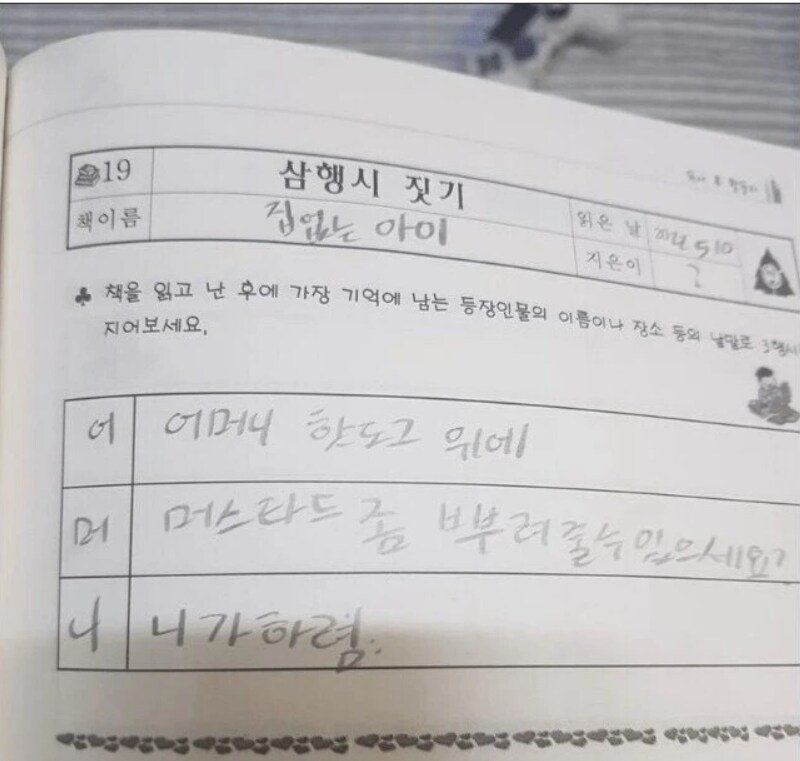 19 삼행시 짓기
책이름 집없는 아이
읽은 날
지은이 ?
♣ 책을 읽고 난 후에 가장 기억에 남는 등장인물의 이름이나 장소 등의 낱말로 3행시
지어보세요.
어 어머니 핫도그 위에
머 머스타드 좀 뿌려줄수있으세요?
니 니가하렴..